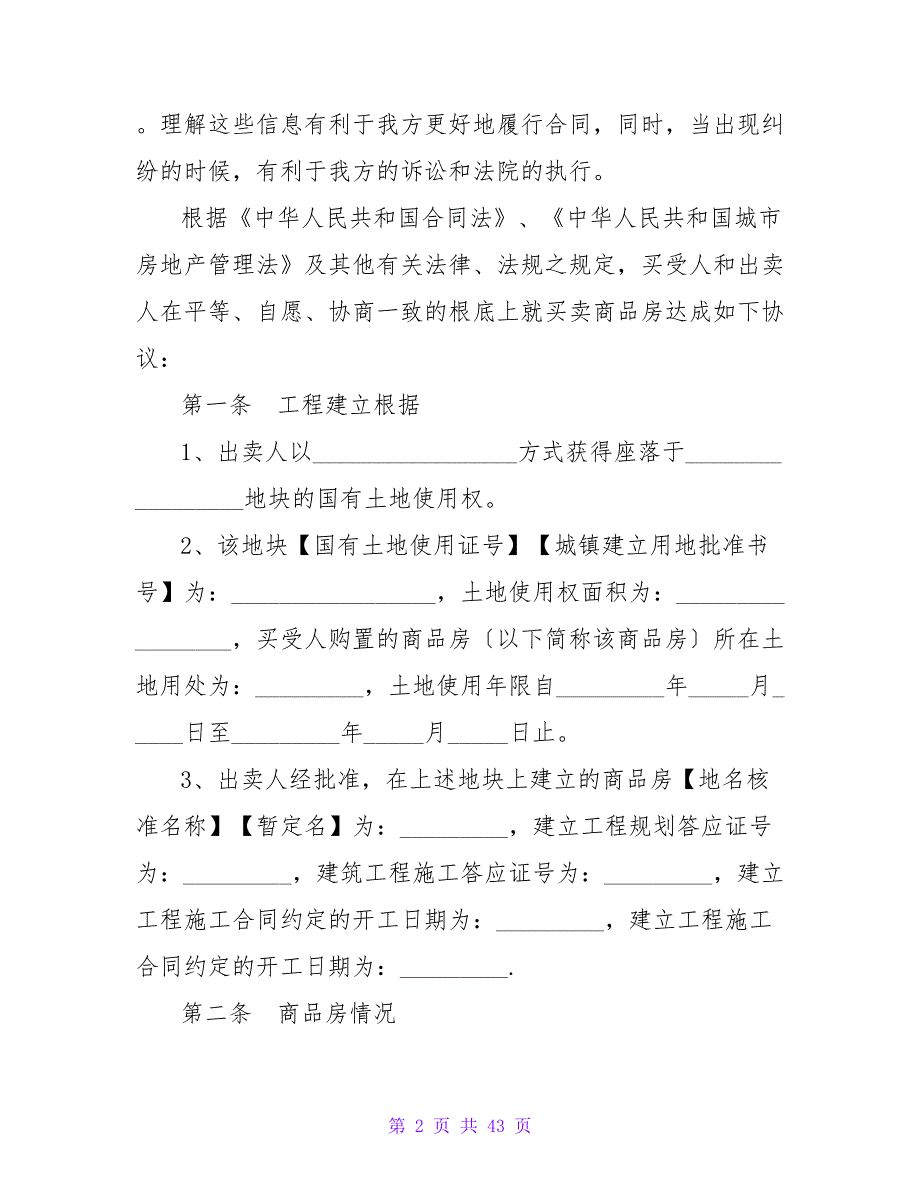 。理解这些信息有利于我方更好地履行合同，同时，当出现纠
纷的时候，有利于我方的诉讼和法院的执行。
根据《中华人民共和国合同法》、《中华人民共和国城市
房地产管理法》及其他有关法律、法规之规定，买受人和出卖
人在平等、自愿、协商一致的根底上就买卖商品房达成如下协
议：
第一条　工程建立根据
1、出卖人以_________________方式获得座落于________
_________地块的国有土地使用权。
2、该地块【国有土地使用证号】【城镇建立用地批准书
号】为：_________________，土地使用权面积为：_________
________，买受人购置的商品房〔以下简称该商品房〕所在土
地用处为：_________，土地使用年限自_________年_____月_
____日至_________年_____月_____日止。
3、出卖人经批准，在上述地块上建立的商品房【地名核
准名称】【暂定名】为：_________，建立工程规划答应证号
为：_________，建筑工程施工答应证号为：_________，建立
工程施工合同约定的开工日期为：_________，建立工程施工
合同约定的开工日期为：_________.
第二条　商品房情况
第 2 页 共 43 页